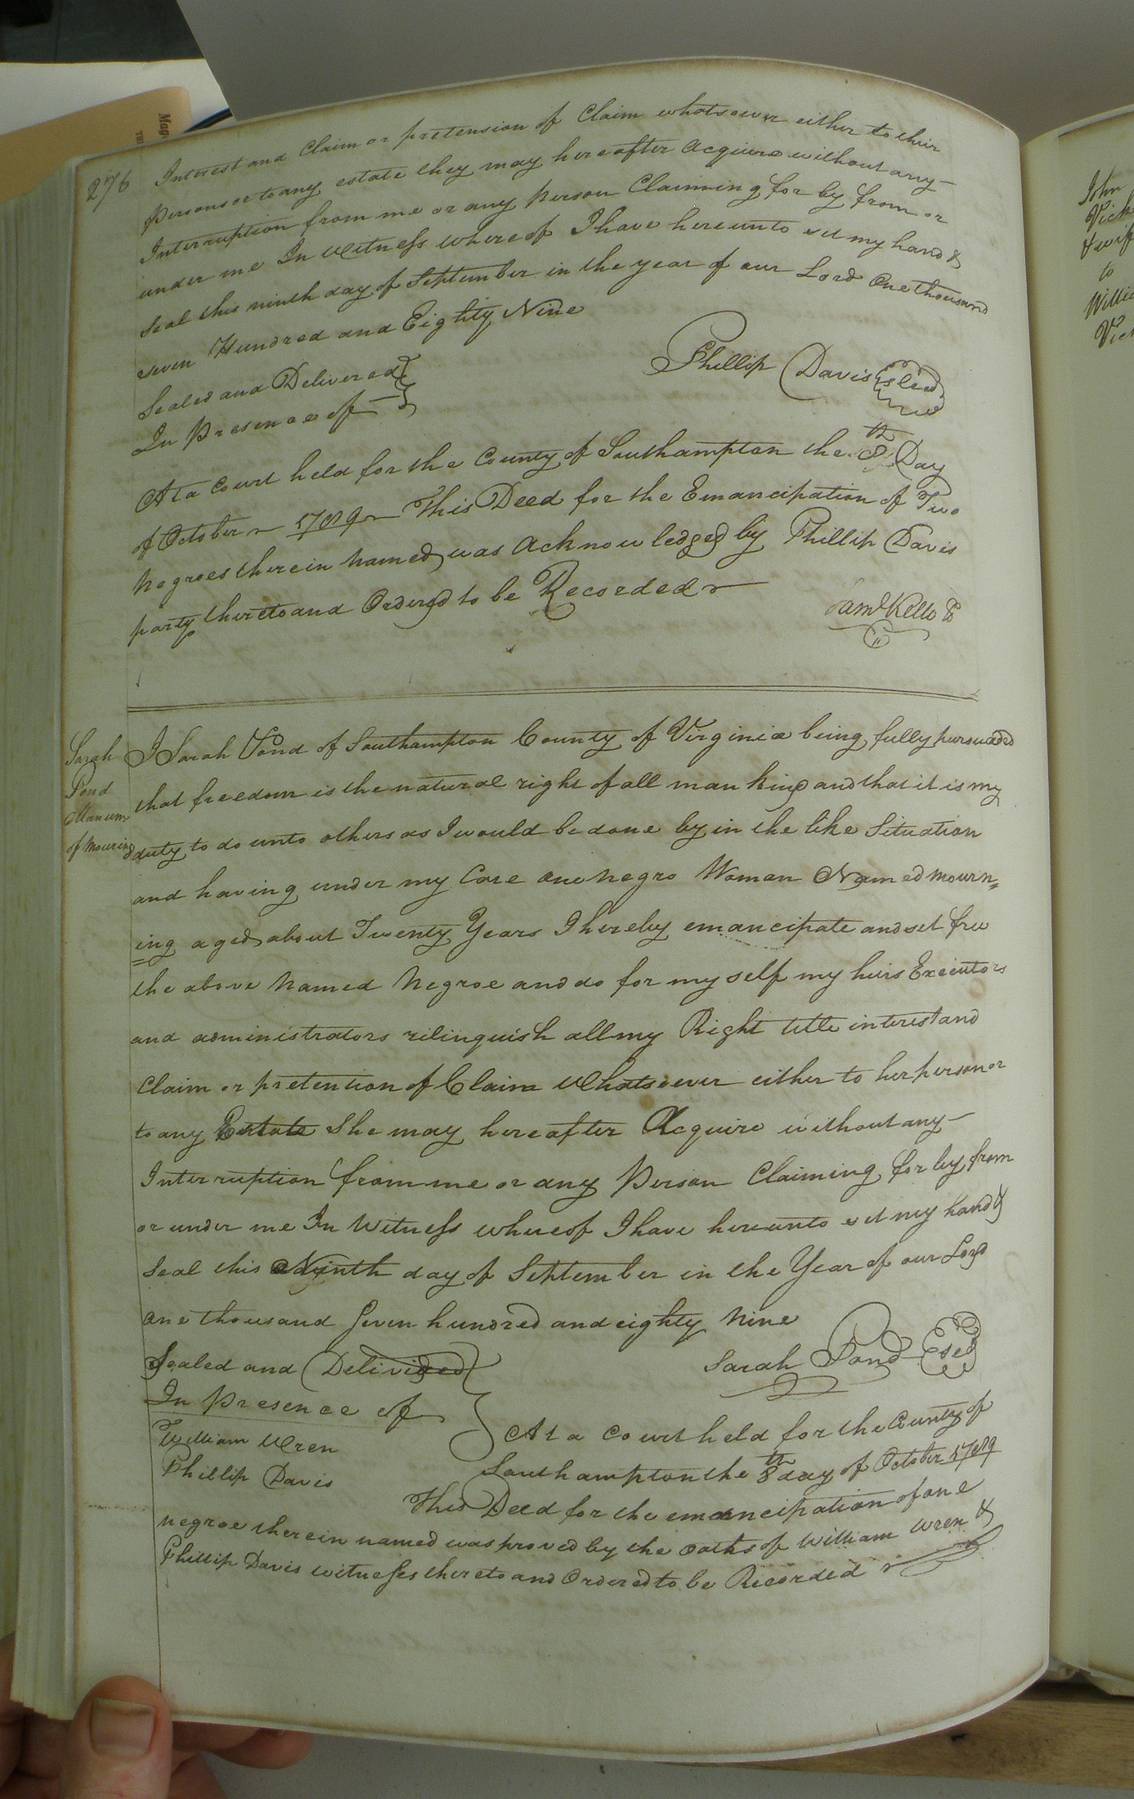 276
Interest and Claim or pretension of Claim whatsoever either to their
persons or to any estate they may hereafter acquire without any
Interruption from me or any person Claiming for by from or
under me In Witness whereof I have hereunto set my hand &
Seal this ninth day of September in the year of our Lord One thousand
seven Hundred and Eighty Nine
Phillip Davis seal
Sealed and Delivered
In Presence of
At a Court held for the County of Southampton the 8th Day
of October 1789 This Deed for the Emancipation of Two
Negroes therein Named was Acknowledged by Phillip Davis
party thereto and Ordered to be Recorded
Saml Kello
Sarah
Pond
Manum
of Mouring
I Sarah Pond of Southampton County of Virginia being fully pursuaded
that freedom is the natural right of all man kind and that it is my
duty to do unto others as I would be done by in the like Situation
and having under my Care one Negro Woman Named Mourn=
=ing aged about Twenty Years I hereby emancipate and set free
the above Named Negroe and do for my self my heirs Executors
and administrators rilinquish all my Right title interest and
Claim or pretention of Claim Whatsoever either to her person or
to any Estate She may hereafter Acquire without any
Interruption from me or any Person Claiming for by from
or under me In Witness whereof I have hereunto set my hand &
Seal this Ninth day of September in the Year of our Lord
one thousand seven hundred and eighty Nine
Sarah Pond Seal
Sealed and Delivired
In Presence of
William Wren
Phillip Davis
At a Court held for the County of
Southampton the 8th day of October 1789
This Deed for the emancipation of one
negroe therein named was proved by the oaths of William Wren &
Phillip Davis witnesses thereto and Ordered to be Recorded
John
to